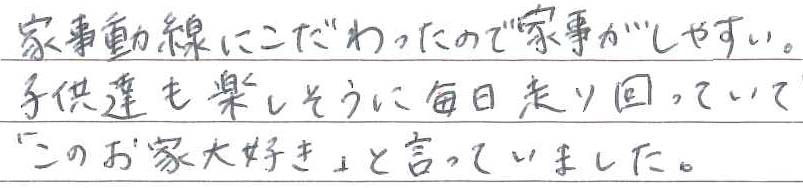 家事動線にこだわったので家事がしやすい。
子供達も楽しそうに毎日走り回っていて
「このお家大好き」と言っていました。